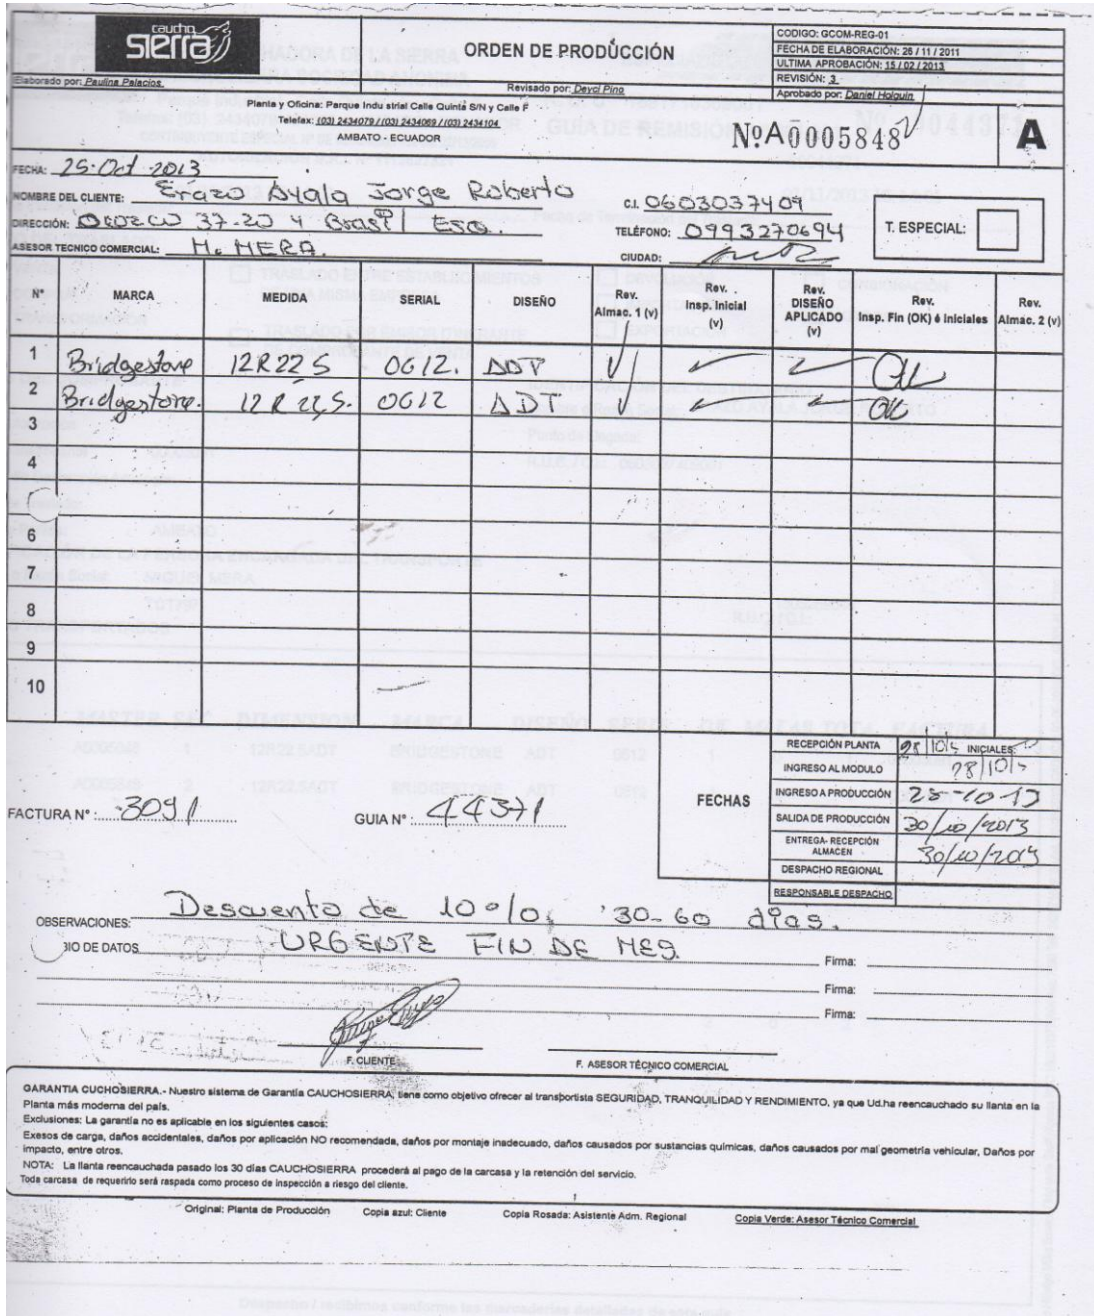 caucho
sierra
ORDEN DE PRODUCCIÓN
CODIGO: GCOM-REG-01
FECHA DE ELABORACIÓN: 26 / 11 / 2011
ULTIMA APROBACIÓN: 15 / 02 / 2013
REVISIÓN: 3
Elaborado por: Paulina Palacios
Revisado por: Deyci Pino
Aprobado por: Daniel Holguin
Planta y Oficina: Parque Industrial Calle Quinta S/N y Calle F
Telefax: (03) 2434079 / (03) 2434069 / (03) 2434104
AMBATO - ECUADOR
GUÍA DE REMISIÓN
Nº.A0005848
A
FECHA: 25-Oct-2013
NOMBRE DEL CLIENTE: Erazo Ayala Jorge Roberto
C.I. 0603037409
DIRECCIÓN: Orozco 37-20 y Brasil Esq.
TELÉFONO: 0993270694
T. ESPECIAL:
ASESOR TECNICO COMERCIAL: M. MERA.
CIUDAD:
N° MARCA MEDIDA SERIAL DISEÑO Rev. Almac. 1 (v) Rev. Insp. Inicial (v) Rev. DISEÑO APLICADO (v) Rev. Insp. Fin (OK) é Iniciales Rev. Almac. 2 (v)
1 Bridgestone 12R22,5 0612. ADT OK
2 Bridgestone. 12 R 22,5. 0612 ADT OK
3
4
6
7
8
9
10
FECHAS
RECEPCIÓN PLANTA 28/10/ INICIALES:
INGRESO AL MODULO 28/10/
INGRESO A PRODUCCIÓN 28-10-13
SALIDA DE PRODUCCIÓN 30/10/2013
ENTREGA- RECEPCIÓN ALMACEN 30/10/2013
DESPACHO REGIONAL
RESPONSABLE DESPACHO
FACTURA N° : 3091
GUIA N° : 44371
OBSERVACIONES: Descuento de 10%, 30-60 días.
BIO DE DATOS URGENTE FIN DE MES.
Firma:
Firma:
Firma:
F. CLIENTE
F. ASESOR TÉCNICO COMERCIAL
GARANTIA CUCHOSIERRA.- Nuestro sistema de Garantía CAUCHOSIERRA, tiene como objetivo ofrecer al transportista SEGURIDAD, TRANQUILIDAD Y RENDIMIENTO, ya que Ud.ha reencauchado su llanta en la
Planta más moderna del país.
Exclusiones: La garantía no es aplicable en los siguientes casos:
Exesos de carga, daños accidentales, daños por aplicación NO recomendada, daños por montaje inadecuado, daños causados por sustancias quimicas, daños causados por mal geometría vehicular, Daños por
impacto, entre otros.
NOTA: La llanta reencauchada pasado los 30 días CAUCHOSIERRA procederá al pago de la carcasa y la retención del servicio.
Toda carcasa de requerirlo será raspada como proceso de inspección a riesgo del cliente.
Original: Planta de Producción Copia azul: Cliente Copia Rosada: Asistente Adm. Regional Copia Verde: Asesor Técnico Comercial